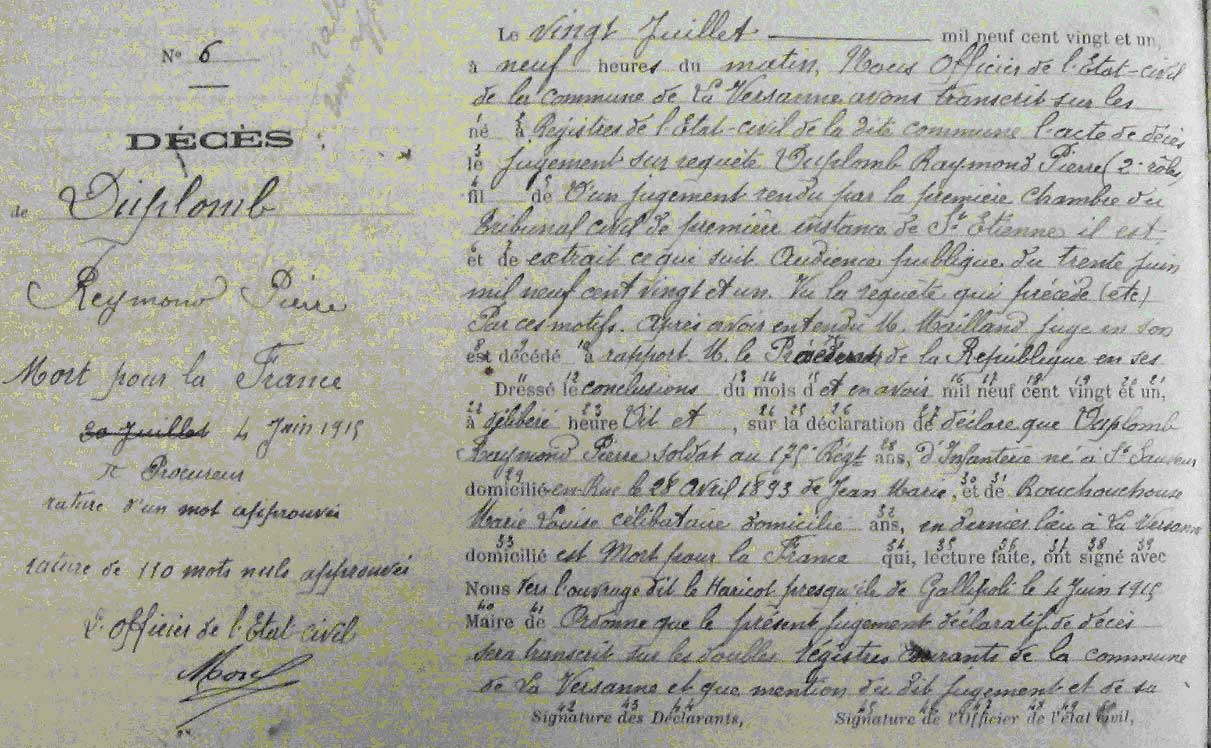 N° 6
DÉCÈS
de Duplomb
Reymond Pierre
Mort pour la France
20 Juillet 4 Juin 1915
Procureur
rature d'un mot approuvée
rature de 110 mots nuls approuvée
L'officier de l'Etat civil
Le vingt Juillet mil neuf cent vingt et un,
à neuf heures du matin, Nous Officier de l'Etat-civil
de la commune de La Versanne avons transcrit sur les
né à Registres de l'Etat-civil de la dite commune l'acte de décès
le jugement sur requête Duplomb Raymond Pierre (2 rôles)
fil de D'un jugement rendu par la première chambre du
Tribunal civil de première instance de St Etienne il est
et de extrait ce qui suit Audience publique du trente juin
mil neuf cent vingt et un. Vu la requête qui précède (etc)
Par ces motifs. Après avoir entendu M. Mailland juge en son
est décédé à rapport M. le de la République en ses
Dressé le conclusions du mois d et en avoir mil neuf cent vingt et un,
à délibéré heure Dit et , sur la déclaration de déclare que Duplomb
Raymond Pierre soldat au 175e Régt ans, d'Infanterie né à St Sauveur
domicilié en Rue le 28 avril 1893 de Jean Marie, et de Rouchouchouse
Marie Louise célibataire domicilié ans, en dernier lieu à La Versanne
domicilié est Mort pour la France qui, lecture faite, ont signé avec
Nous vers l'ouvrage dit le Haricot presqu'île de Gallipoli le 4 Juin 1915
Maire de Ordonne que le présent jugement déclaratif de décès
sera transcrit sur les doubles registres courants de la commune
de La Versanne et que mention du dit jugement et de sa
Signature des Déclarants, Signature de l'Officier de l'état civil,